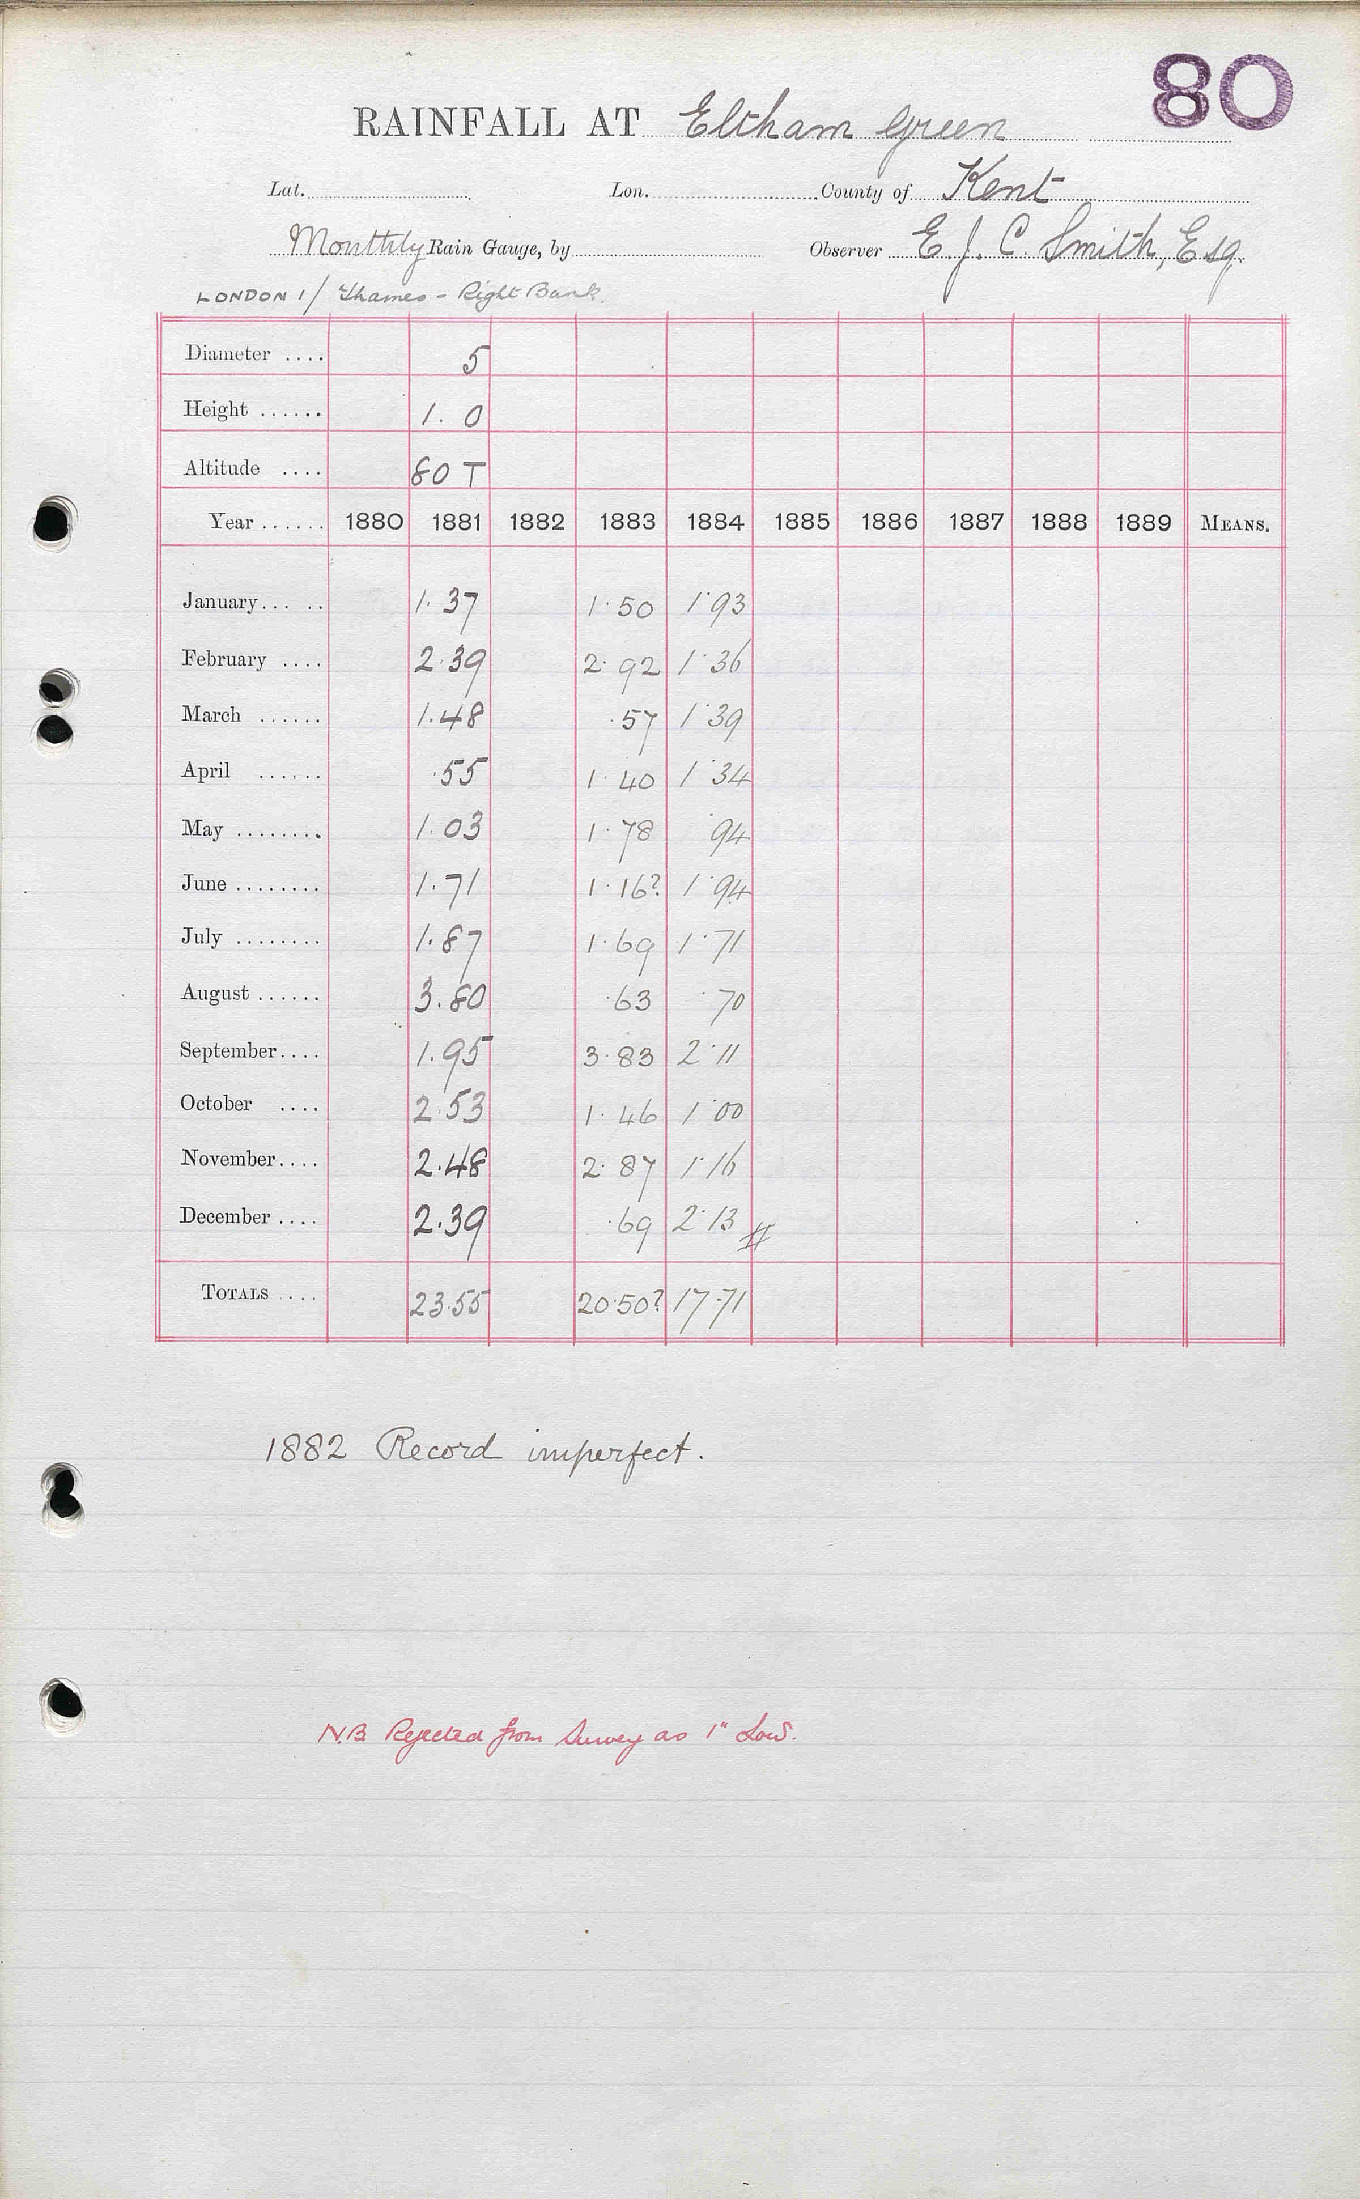 80
RAINFALL AT Eltham Green
Lat. Lon. County of Kent
Monthly Rain Gauge, by Observer E. J. C. Smith, Esq.
LONDON 1/ Thames - Right Bank.
Diameter .... 5
Height ...... 1. 0
Altitude .... 80 T
Year ...... 1880 1881 1882 1883 1884 1885 1886 1887 1888 1889 MEANS.
January... .. 1.37 1.50 1.93
February .... 2.39 2.92 1.36
March ...... 1.48 .57 1.39
April ...... .55 1.40 1.34
May ........ 1.03 1.78 .94
June ........ 1.71 1.16? 1.94
July ........ 1.87 1.69 1.71
August ...... 3.80 .63 .70
September.... 1.95 3.83 2.11
October .... 2.53 1.46 1.00
November.... 2.48 2.87 1.16
December .... 2.39 .69 2.13 #
TOTALS .... 23.55 20.50? 17.71
1882 Record imperfect.
N.B. Rejected from Survey as 1" Low.